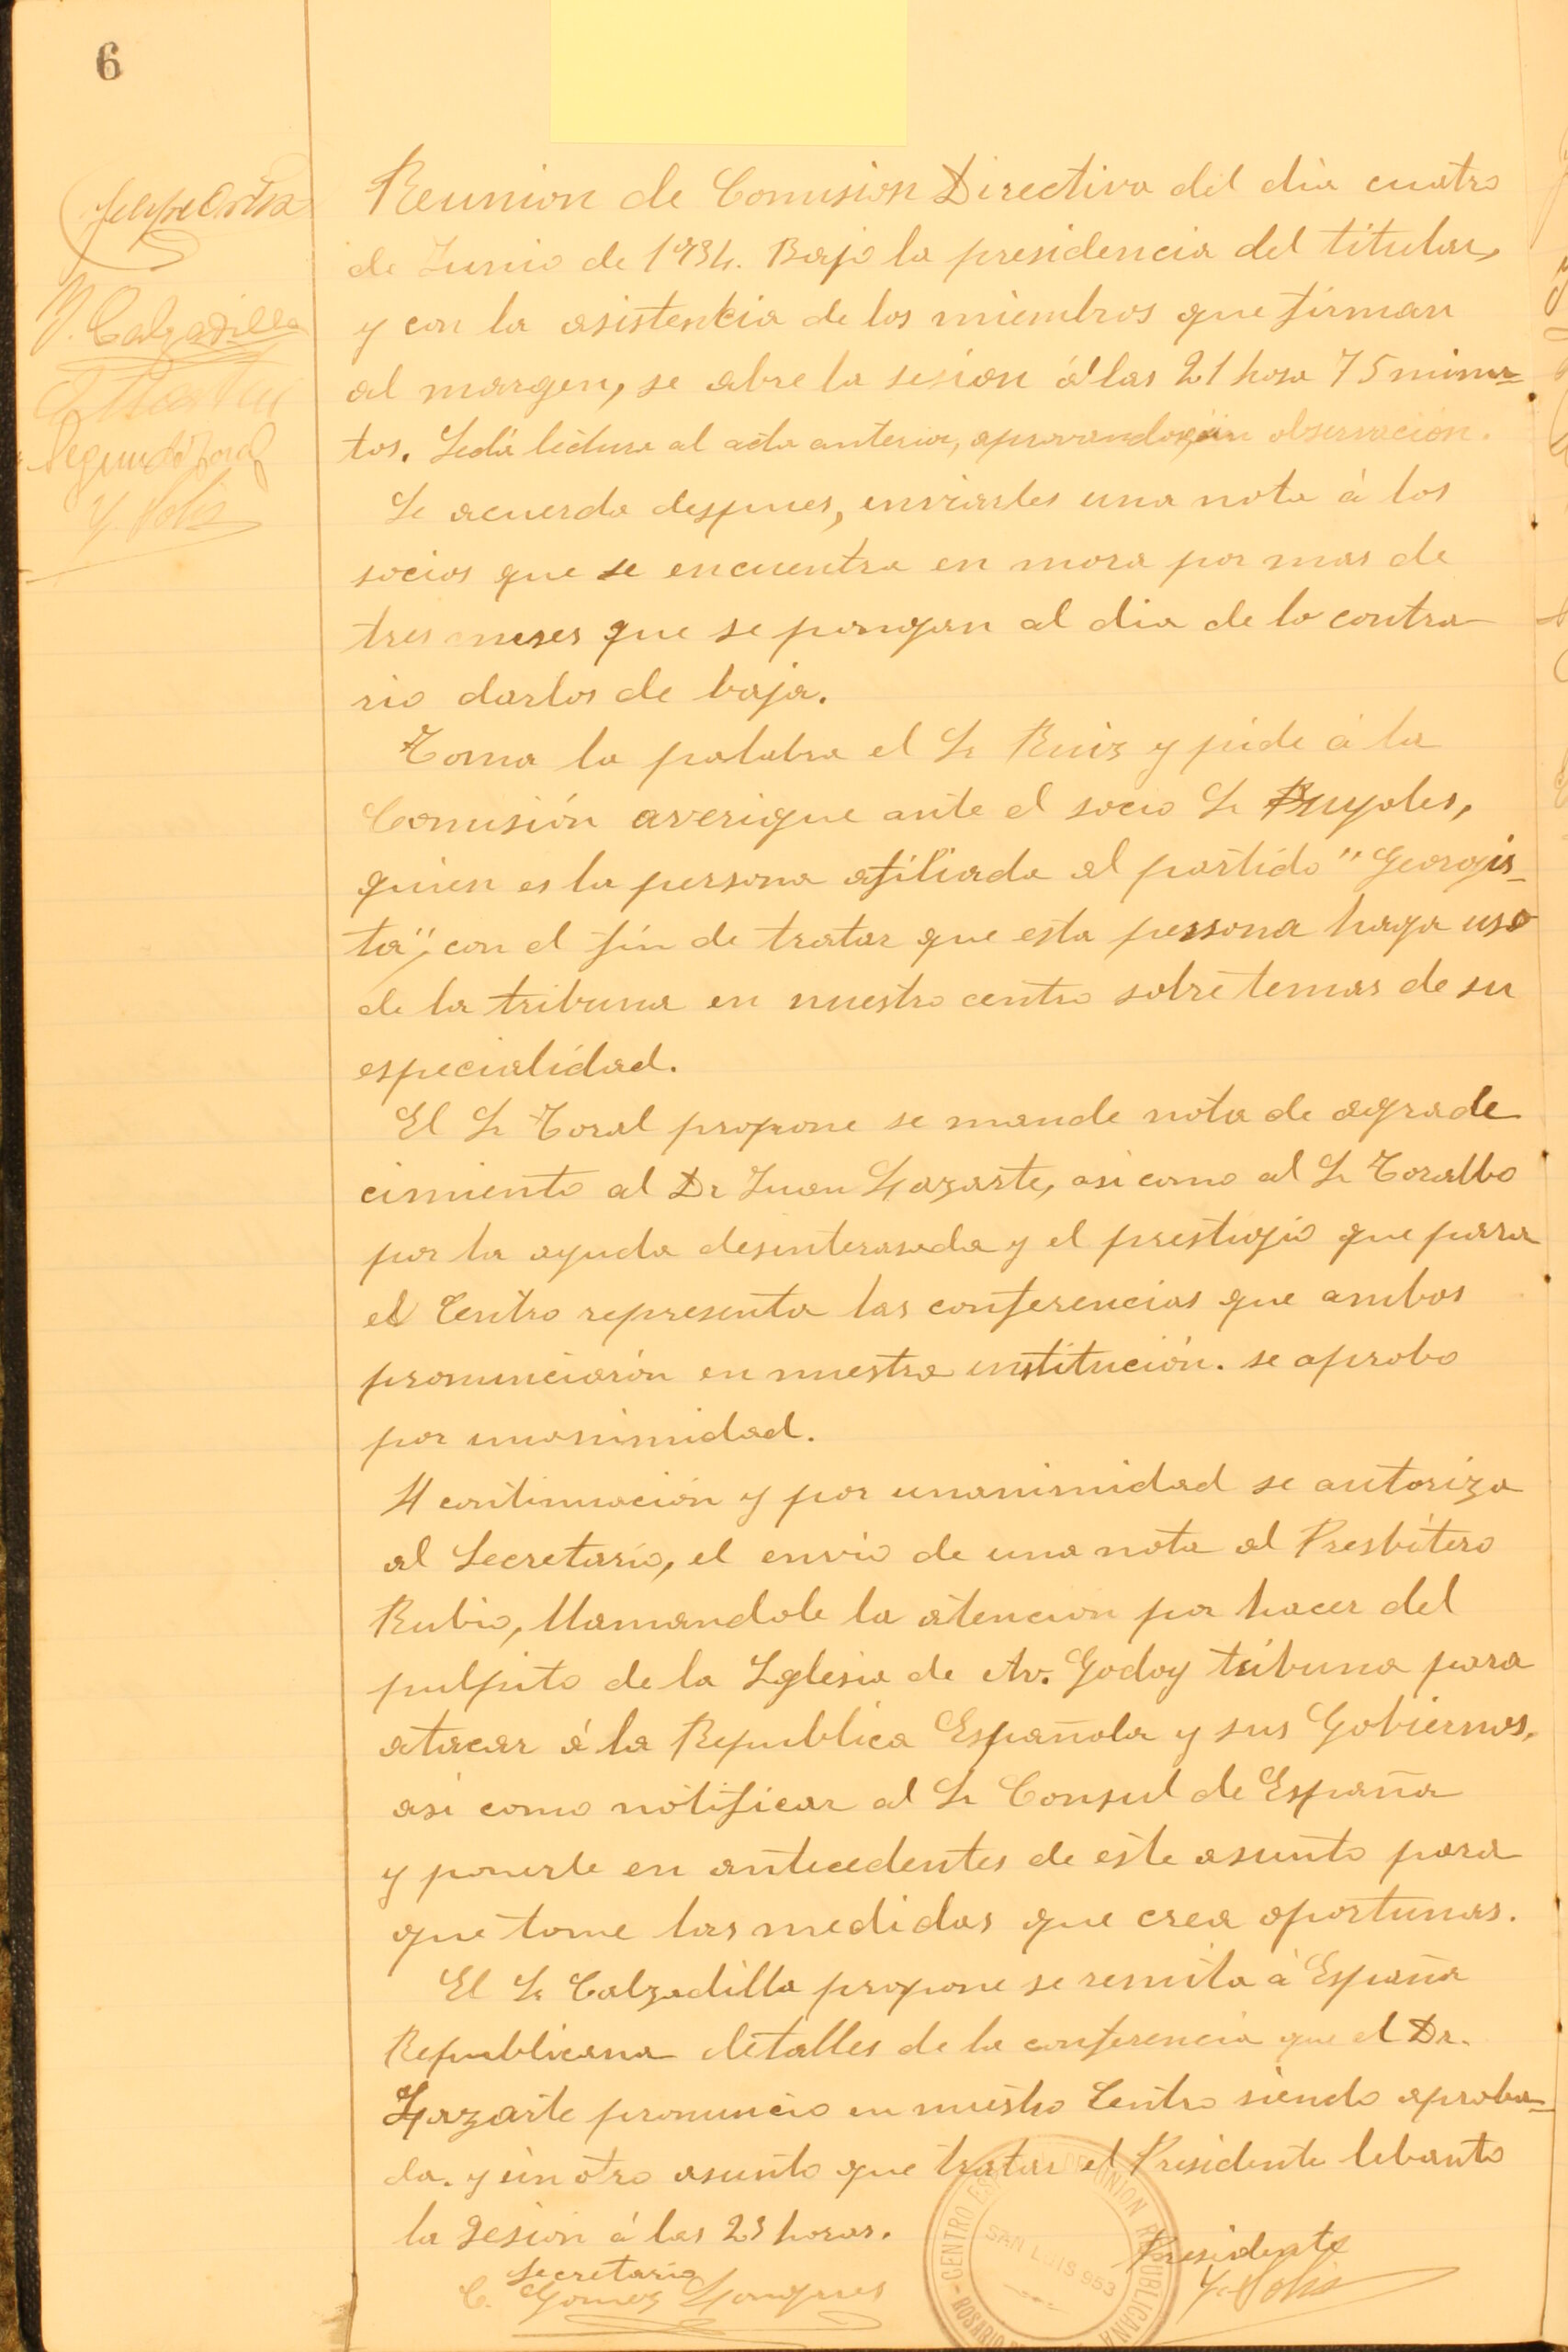 6
Felipe Ortiz
Y. Calzadilla
Segundo Toral
Y. Solis
Reunion de Comision Directiva del dia cuatro
de Junio de 1934. Bajo la presidencia del titular,
y con la asistencia de los miembros que firman
al margen, se abre la sesion á las 21 hora 75 minu-
tos. Se dá lectura al acta anterior, aprovandose sin observación.
Se acuerda despues, enviarles una nota á los
socios que se encuentra en mora por mas de
tres meses que se pongan al dia de lo contra-
rio darlos de baja.
Toma la palabra el Sr Ruiz y pide á la
Comisión averigue ante el socio Sr Puyoles,
quien es la persona afiliada al partido "Georgis-
ta", con el fin de tratar que esta persona haga uso
de la tribuna en nuestro centro sobre temas de su
especialidad.
El Sr Toral propone se mande nota de agrade
cimiento al Dr Juan Lazarte, asi como al Sr Toralbo
por la ayuda desinterasada y el prestigio que para
el Centro representa las conferencias que ambos
pronunciarón en nuestra institución. se aprobo
por unanimidad.
A continuación y por unanimidad se autoriza
al Secretario, el envio de una nota al Presbitero
Rubio, llamandole la atencion por hacer del
pulpito de la Iglesia de Av. Godoy tribuna para
atacar á la Republica Española y sus Gobiernos,
asi como notificar al Sr Consul de España
y ponerle en antecedentes de este asunto para
que tome las medidas que crea oportunas.
El Sr Calzadilla propone se remita á España
Republicana detalles de la conferencia que el Dr.
Lazarte pronuncio en nuestro Centro siendo aproba-
da. y sin otro asunto que tratar el Presidente lebanto
la sesion á las 23 horas.
Secretario
C. Gomez
Presidente
Y. Solis
CENTRO ESPAÑOL DE UNION REPUBLICANA
SAN LUIS 953
ROSARIO